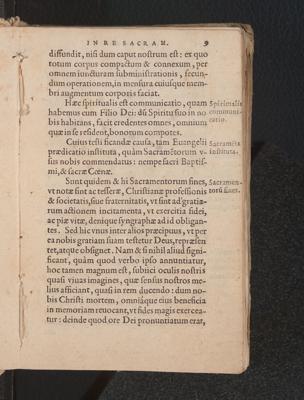 IN RE SACRAM. 9
diffundit, nisi dum caput nostrum est: ex quo
totum corpus compactum & connexum, per
omnem iuncturam subministrationis, secun-
dum operationem, in mensura cuiusque mem-
bri augmentum corporis faciat.
Hæc spiritualis est communicatio, quam
habemus cum Filio Dei: dū Spiritu suo in no
bis habitans, facit credentes omnes, omnium
quæ in se resident, bonorum compotes.
Spiritualis
communi-
catio.
Cuius testificandæ causa, tam Euangelii
prædicatio instituta, quàm Sacramētorum v-
sus nobis commendatus: nempe sacri Baptis-
mi, & sacræ Cœnæ.
Sacramēta
instituta.
Sunt quidem & hi Sacramentorum fines,
vt notæ sint ac tesseræ, Christianæ professionis
& societatis, siue fraternitatis, vt sint ad gratia-
rum actionem incitamenta, vt exercitia fidei,
ac piæ vitæ, denique syngraphæ ad id obligan-
tes. Sed hic vnus inter alios præcipuus, vt per
ea nobis gratiam suam testetur Deus, repræsen
tet, atque obsignet. Nam & si nihil aliud signi-
ficant, quàm quod verbo ipso annuntiatur,
hoc tamen magnum est, subiici oculis nostris
quasi viuas imagines, quæ sensus nostros me-
lius afficiant, quasi in rem ducendo: dum no-
bis Christi mortem, omniáque eius beneficia
in memoriam reuocant, vt fides magis exercea-
tur: deinde quod ore Dei pronuntiatum erat,
Sacramen-
torū fines.